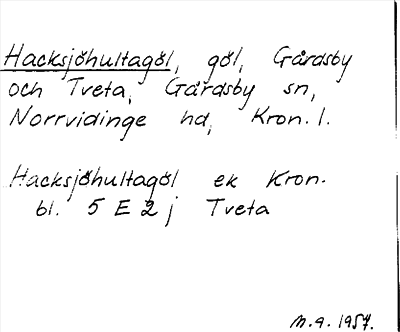 Hacksjöhultagöl, göl, Gårdsby
och Tveta, Gårdsby sn,
Norrvidinge hd, Kron. l.
Hacksjöhultagöl ek Kron.
bl. 5 E 2 j Tveta
m.a. 1957.